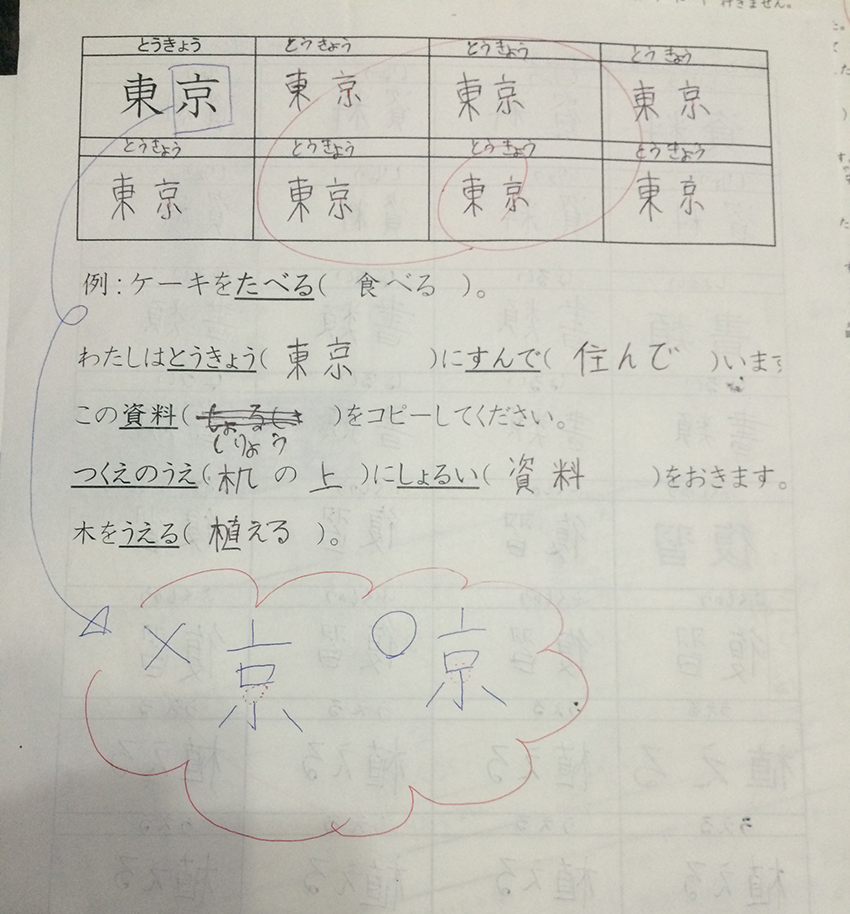 行きません。
とうきょう とうきょう とうきょう とうきょう
東京 東京 東京 東京
とうきょう とうきょう とうきょう とうきょう
東京 東京 東京 東京
例:ケーキをたべる( 食べる )。
わたしはとうきょう( 東京 )にすんで( 住んで )います
この資料( しりょう )をコピーしてください。
つくえのうえ( 机の上 )にしょるい( 資料 )をおきます。
木をうえる( 植える )。
× 京 ○ 京